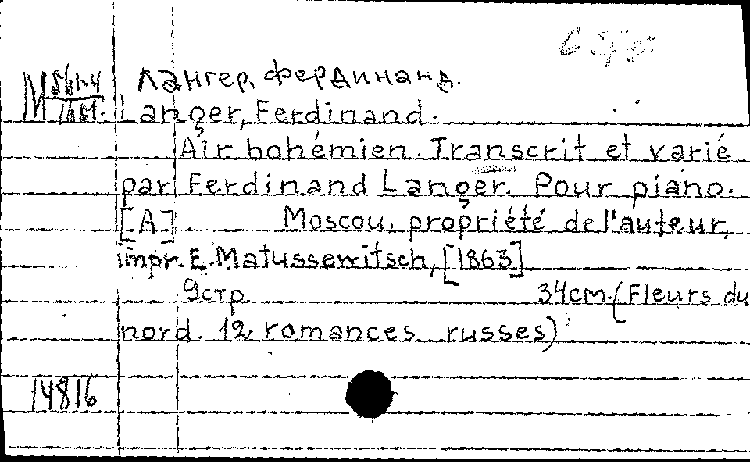 Лангер, Фердинанд.
M
Langer, Ferdinand.
Air bohémien. Transcrit et varié
par Ferdinand Langer. Pour piano.
[A] Moscou, propriété de l'auteur,
impr. E. Matussewitsch, [1863]
9стр 34cm. (Fleurs du
nord. 12 romances russes)
14816